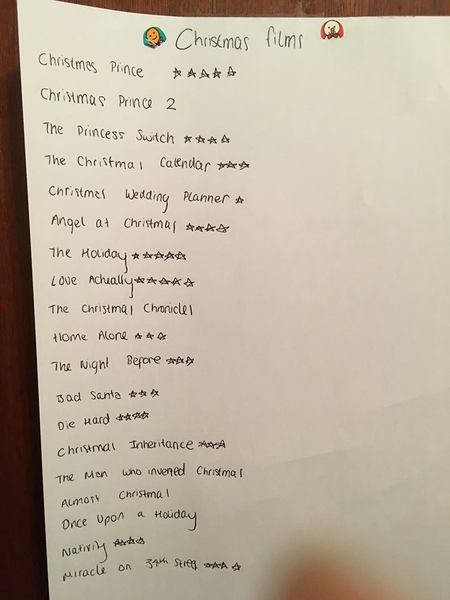 Christmas films
Christmas Prince ☆☆☆☆☆
Christmas Prince 2
The Princess Switch ☆☆☆☆
The Christmas Calendar ☆☆☆
Christmas Wedding Planner ☆
Angel at Christmas ☆☆☆☆
The Holiday ☆☆☆☆☆
Love Actually ☆☆☆☆☆
The Christmas Chronicles
Home Alone ☆☆☆
The Night Before ☆☆☆
Bad Santa ☆☆☆
Die Hard ☆☆☆☆
Christmas Inheritance ☆☆☆
The Man who invented Christmas
Almost Christmas
Once Upon a Holiday
Nativity ☆☆☆
Miracle on 34th Street ☆☆☆☆